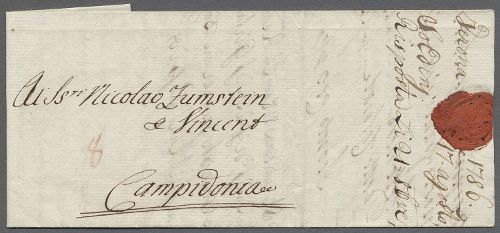 Ai Ss.ri Nicolao Zumstein
e Vincent
8
Campidonia
Verona 1786.
17 agosto
Soldini
Risposta